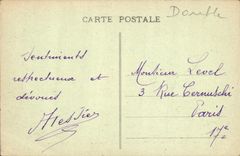 CARTE POSTALE
Double
Sentiments
respectueux et
dévoués
Monsieur Level
3 Rue Cernuschi
Paris
17e